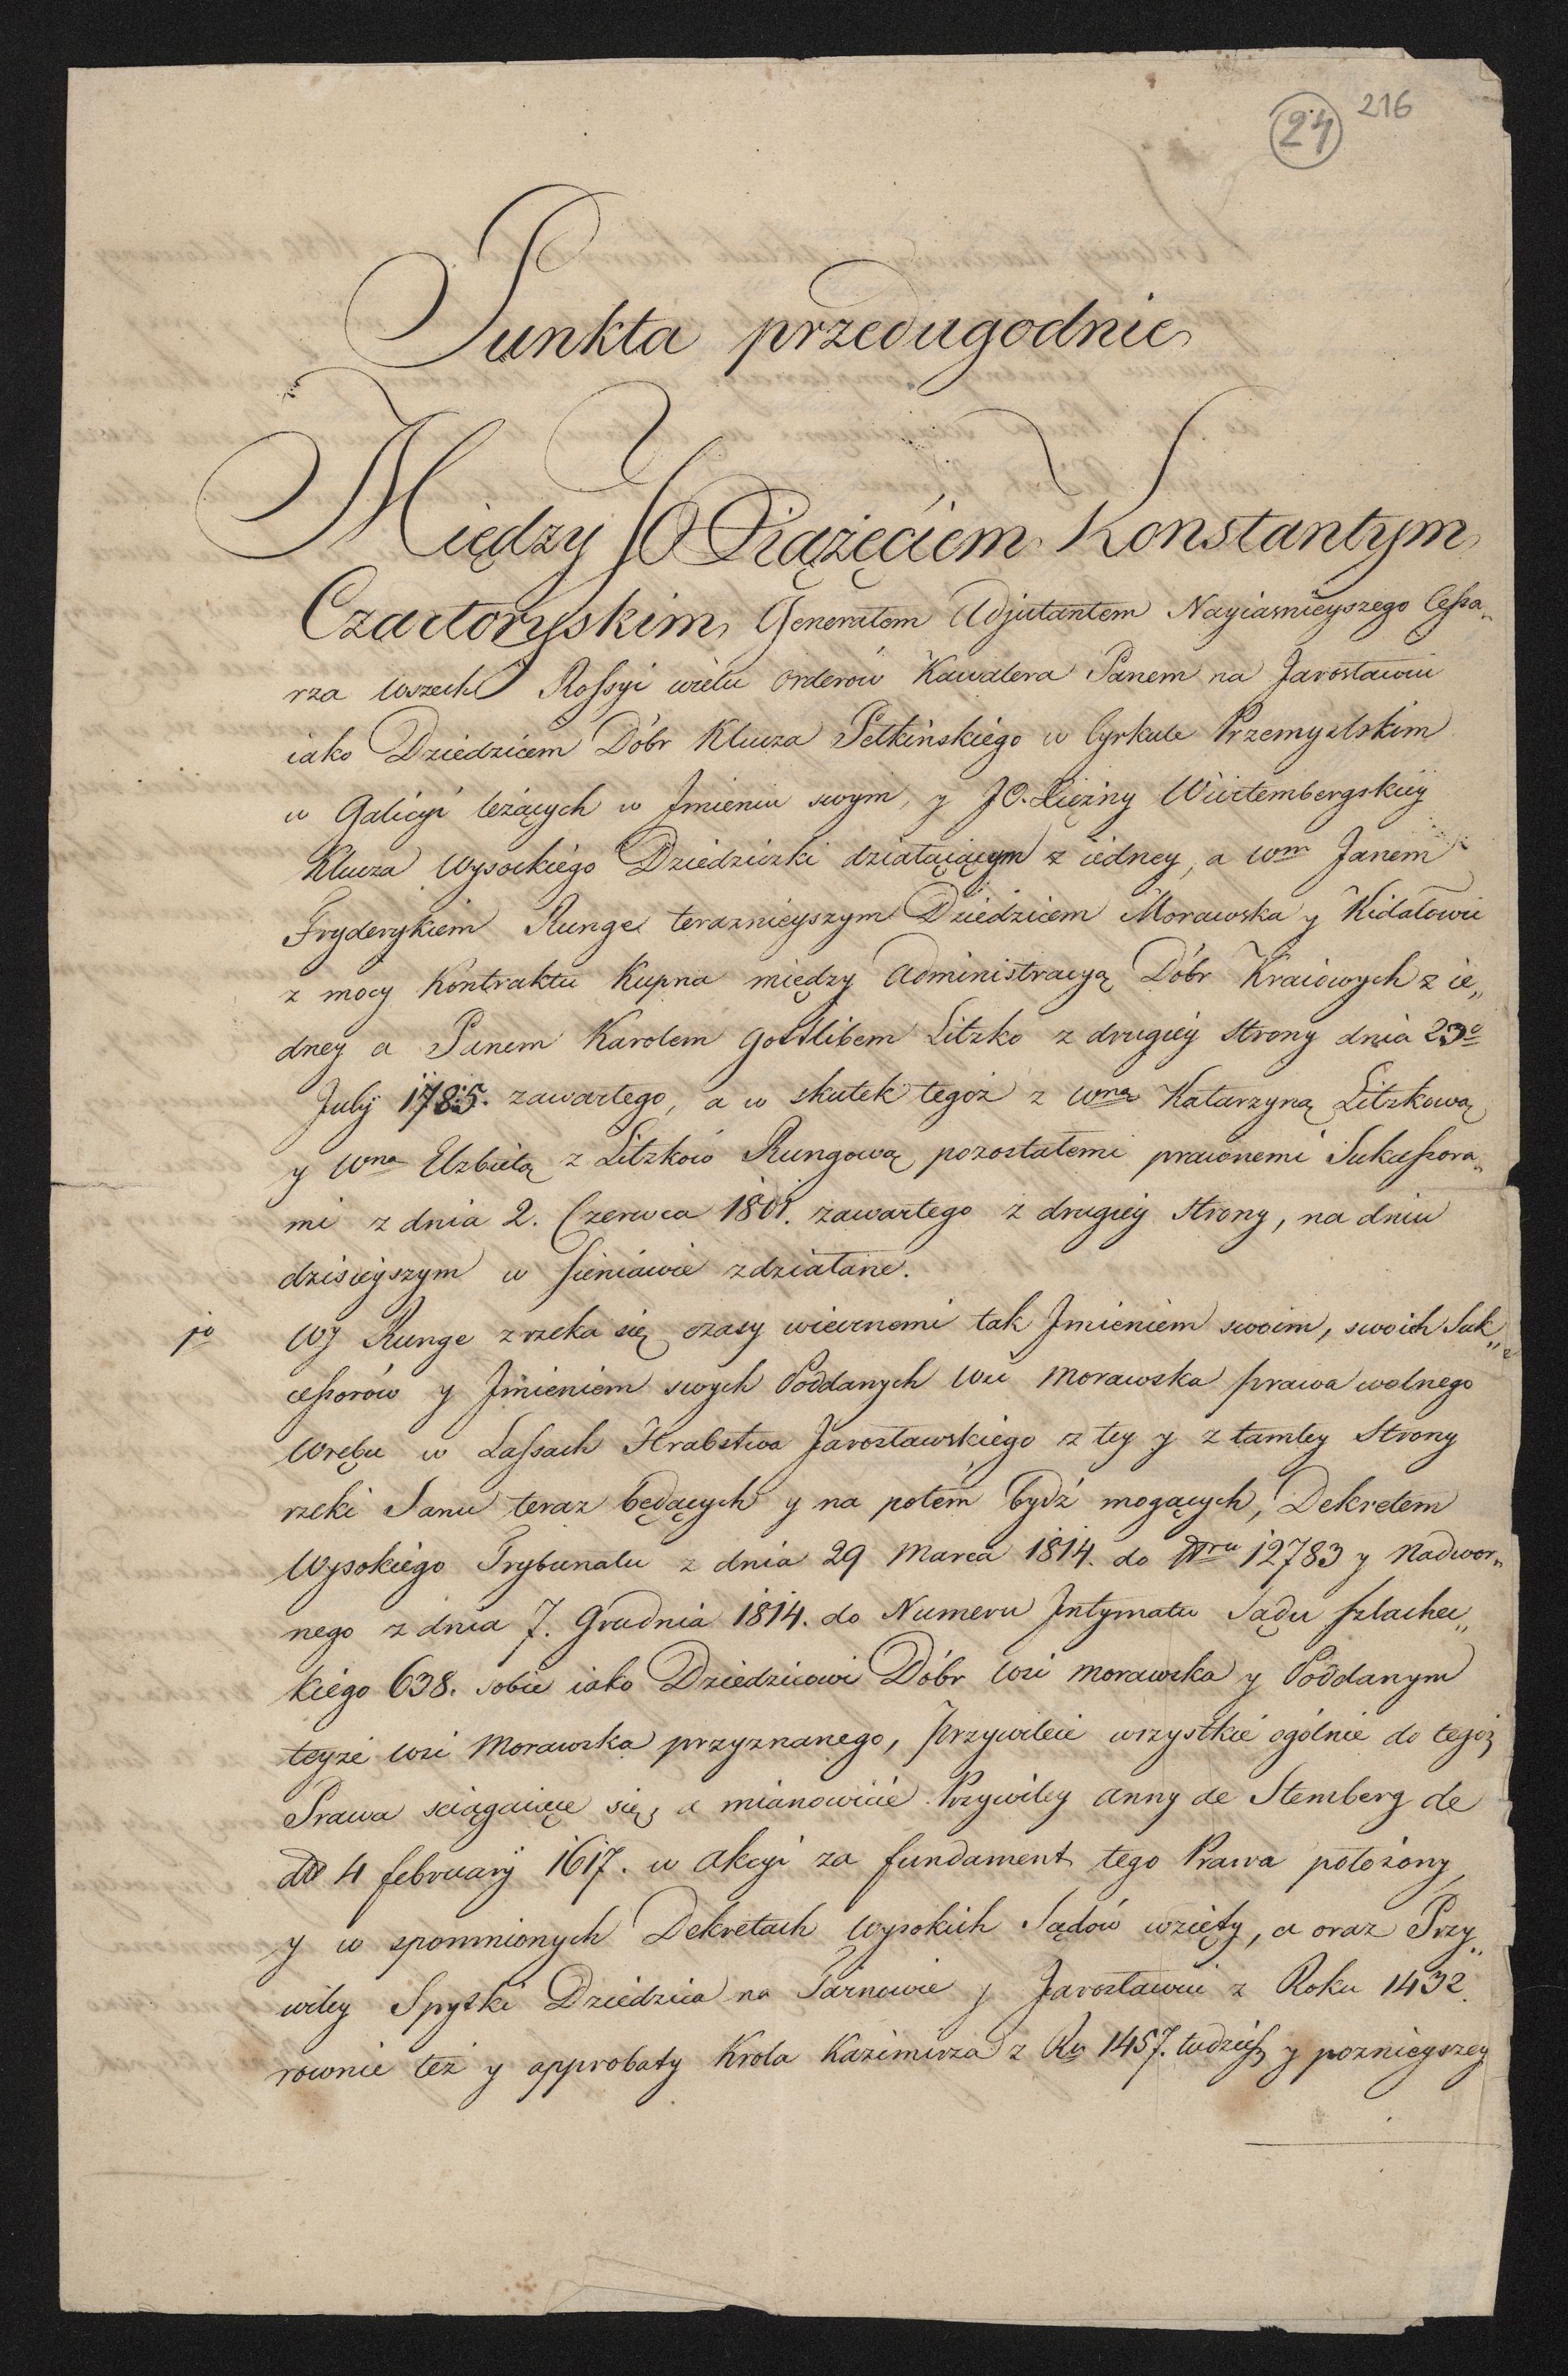 24 216
Punkta przedugodnie
Między JO Xiążęciem Konstantym
Czartoryskim Generałem Adjutantem Nayiasnieyszego Cessa„
rza wszech Rossyi wielu orderów Kawalera Panem na Jarosławiu
iako Dziedzicem Dóbr Klucza Pełkińskiego w Cyrkule Przemyslskim
w Galicyi leżących w Jmieniu swym, y JO. Xiężny Würtembergskiey
Klucza Wysockiego Dziedziczki działaiącym z iedney, a Wm Janem
Fryderykiem Runge teraznieyszym Dziedzicem Morawska y Kidałowic
z mocy Kontraktu Kupna między Administracyą Dóbr Kraiowych z ie„
dney a Panem Karolem Gottlibem Litzko z drugiey Strony dnia 23o
July 1785. zawartego, a w skutek tegoż z Wną Katarzyną Litzkową
y Wną Elzbietą z Litzków Rungową pozostałemi prawnemi Sukcessora„
mi z dnia 2. Czerwca 1801. zawartego z drugiey Strony, na dniu
dzisieyszym w Sieniawie zdziałane.
1o WJ Runge zrzeka się czasy wiecznemi tak Jmieniem swoim, swoich Suk„
cessorów y Jmieniem swych Poddanych Wsi Morawska prawa wolnego
Wrębu w Lassach Hrabstwa Jarosławskiego z tey y z tamtey Strony
rzeki Sanu teraz będących y na potem bydź mogących, Dekretem
Wysokiego Trybunału z dnia 29 Marca 1814. do Nru 12783 y Nadwor„
nego z dnia 7. Grudnia 1814. do Numeru Jntymatu Sądu szlachec„
kiego 638. sobie iako Dziedzicowi Dóbr Wsi Morawska y Poddanym
teyże Wsi Morawska przyznanego, przywileie wszystkie ogólnie do tegoż
Prawa sciągaiące się, a mianowicie Przywiley Anny de Stemberg de
dto 4 february 1617. w Akcyi za fundament tego Prawa położony,
y w spomnionych Dekretach Wysokich Sądów wzięty, a oraz Przy„
wiley Spytki Dziedzica na Tarnowie y Jarosławiu z Roku 1432.
rownie też y approbaty Krola Kazimirza z Ru 1457. tudzież y poznieyszey